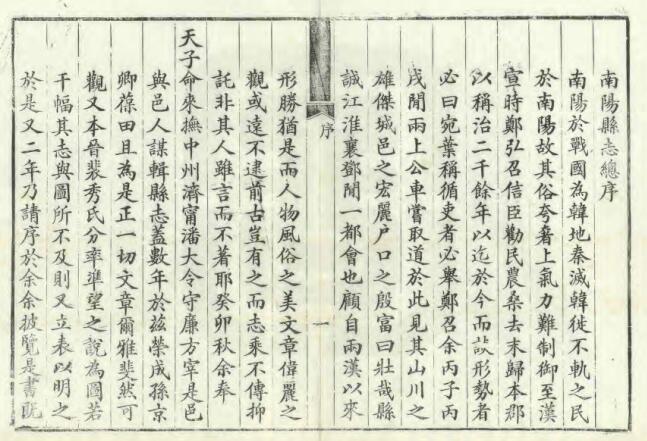 南陽縣志總序
南陽於戰國為韓地秦滅韓徙不軌之民
於南陽故其俗夸奢上氣力難制御至漢
宣時鄭弘召信臣勸民農桑去末歸本郡
以稱治二千餘年以迄於今而談形勢者
必曰宛葉稱循吏者必舉鄭召余丙子丙
戌間兩上公車嘗取道於此見其山川之
雄傑城邑之宏麗戶口之殷富曰壯哉縣
誠江淮襄鄧間一都會也顧自兩漢以來
序
一
形勝猶是而人物風俗之美文章偉麗之
觀或遠不逮前古豈有之而志乘不傳抑
託非其人雖言而不著耶癸卯秋余奉
天子命來撫中州濟甯潘大令守廉方宰是邑
與邑人謀輯縣志蓋數年於茲榮成孫京
卿葆田且為是正一切文章爾雅斐然可
觀又本晉裴秀氏分率準望之說為圖若
干幅其志與圖所不及則又立表以明之
於是又二年乃請序於余余披覽是書既